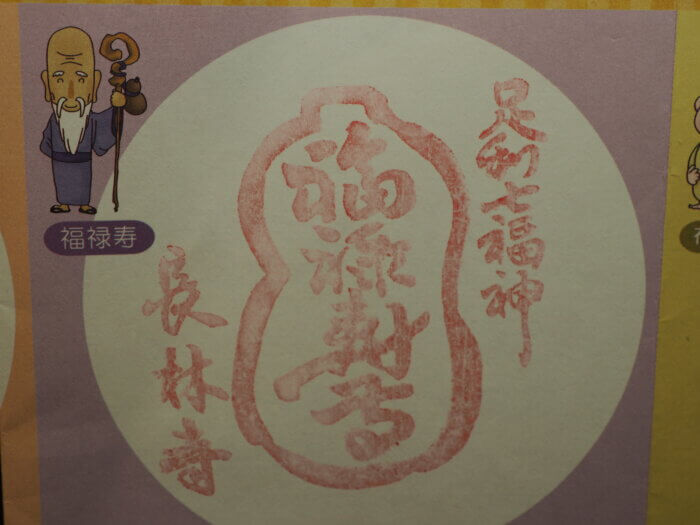 福禄寿
足利七福神
福禄壽
長林寺